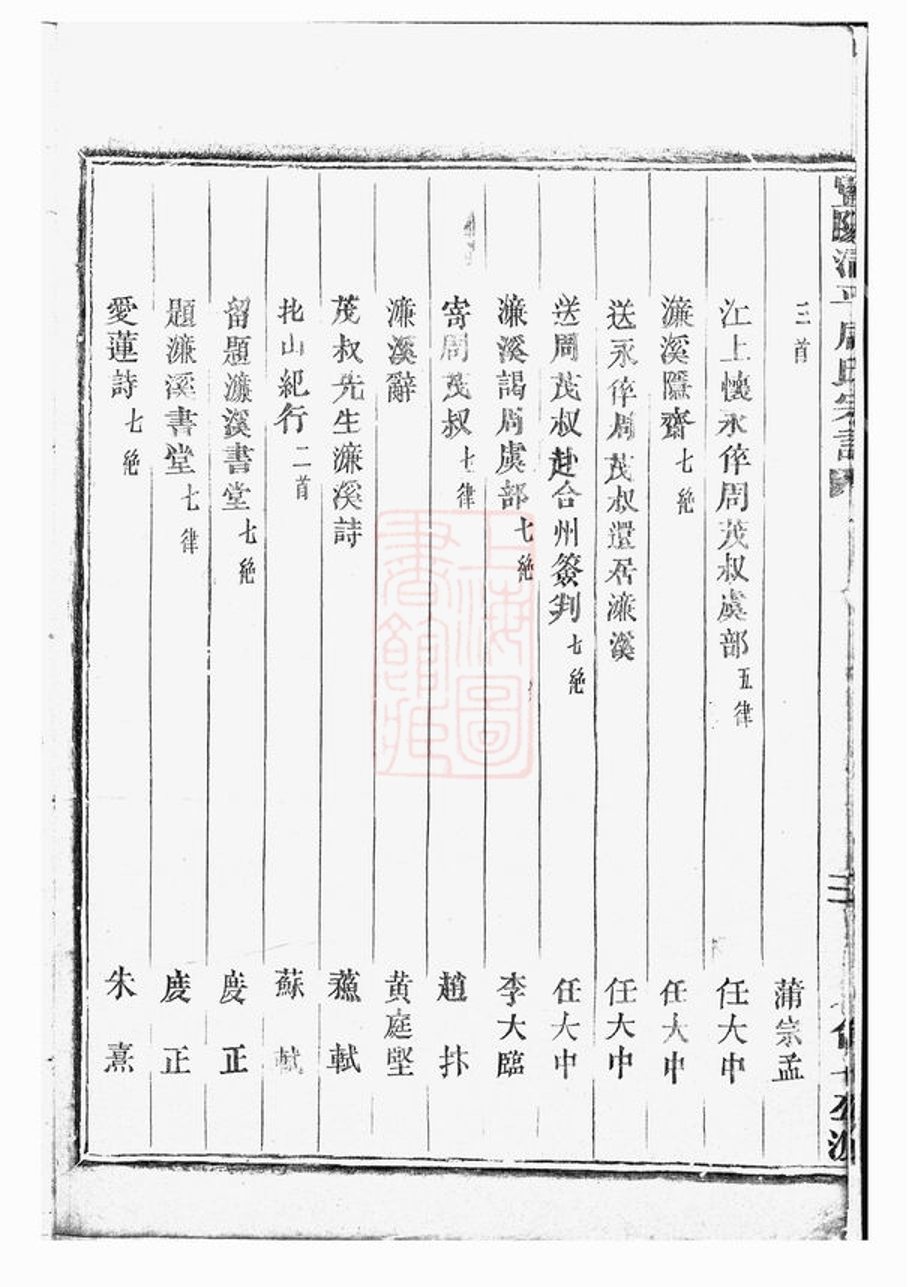 三首 蒲宗孟
江上懷永倅周茂叔虞部 五律 任大中
濂溪隱齋 七絶 任大中
送永倅周茂叔還居濂溪 任大中
送周茂叔赴合州簽判 七絶 任大中
濂溪謁周虞部 七絶 李大臨
寄周茂叔 七律 趙抃
濂溪辭 黄庭堅
茂叔先生濂溪詩 蘓軾
北山紀行 二首 蘇軾
留題濂溪書堂 七絶 度正
題濂溪書堂 七律 度正
愛蓮詩 七絶 朱熹
上海圖書館藏